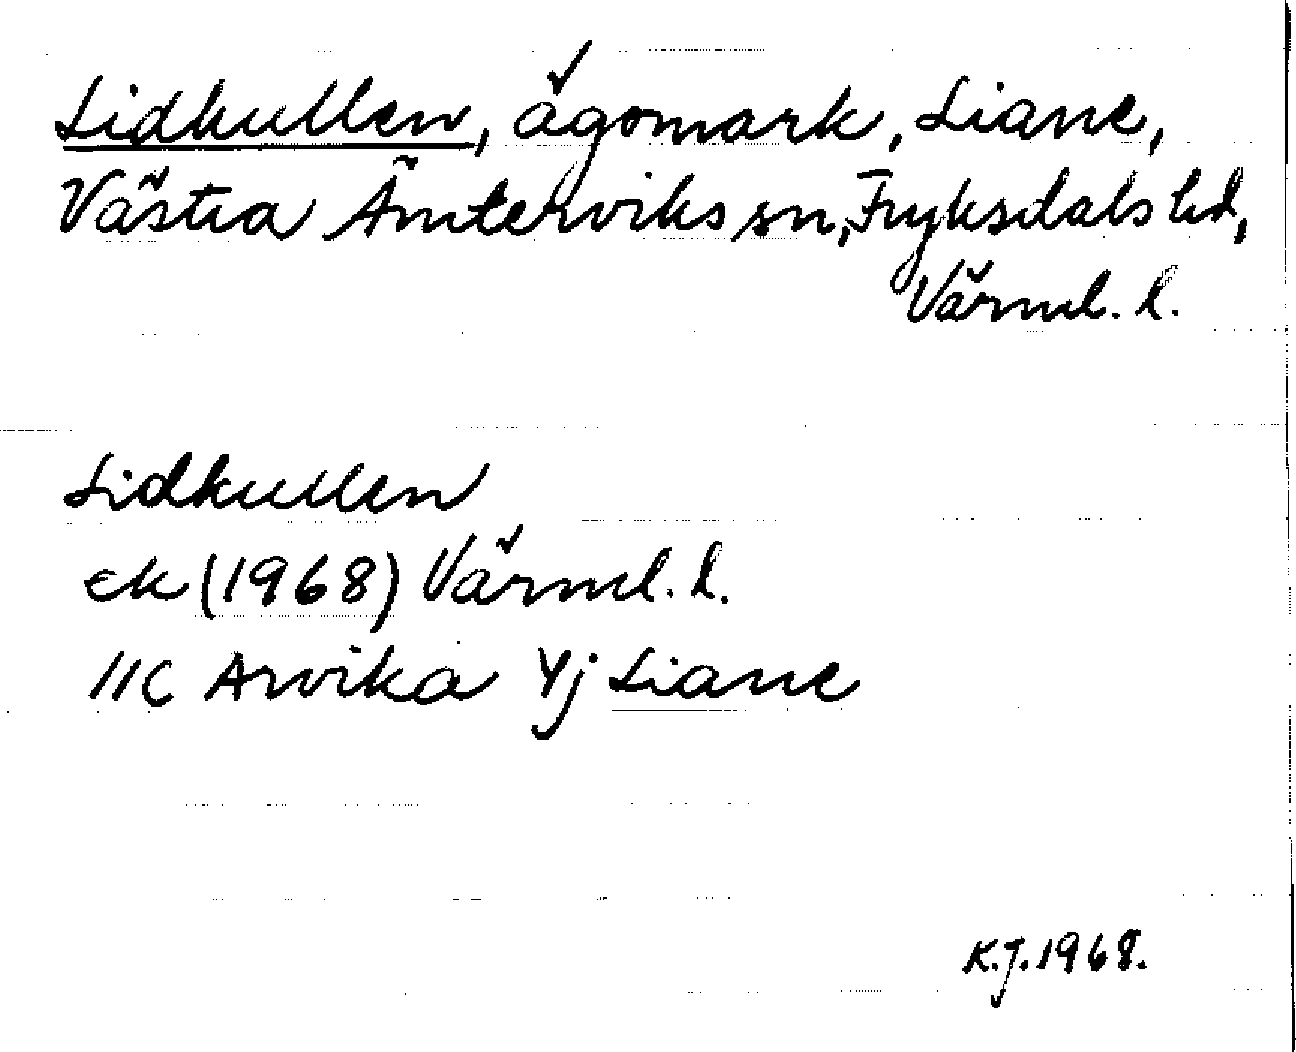 Lidkullen, ägomark, Liane,
Västra Ämterviks sn, Fryksdals hd,
Värml. l.
Lidkullen
ek (1968) Värml. l.
11C Arvika 4j Liane
K.J. 1968.